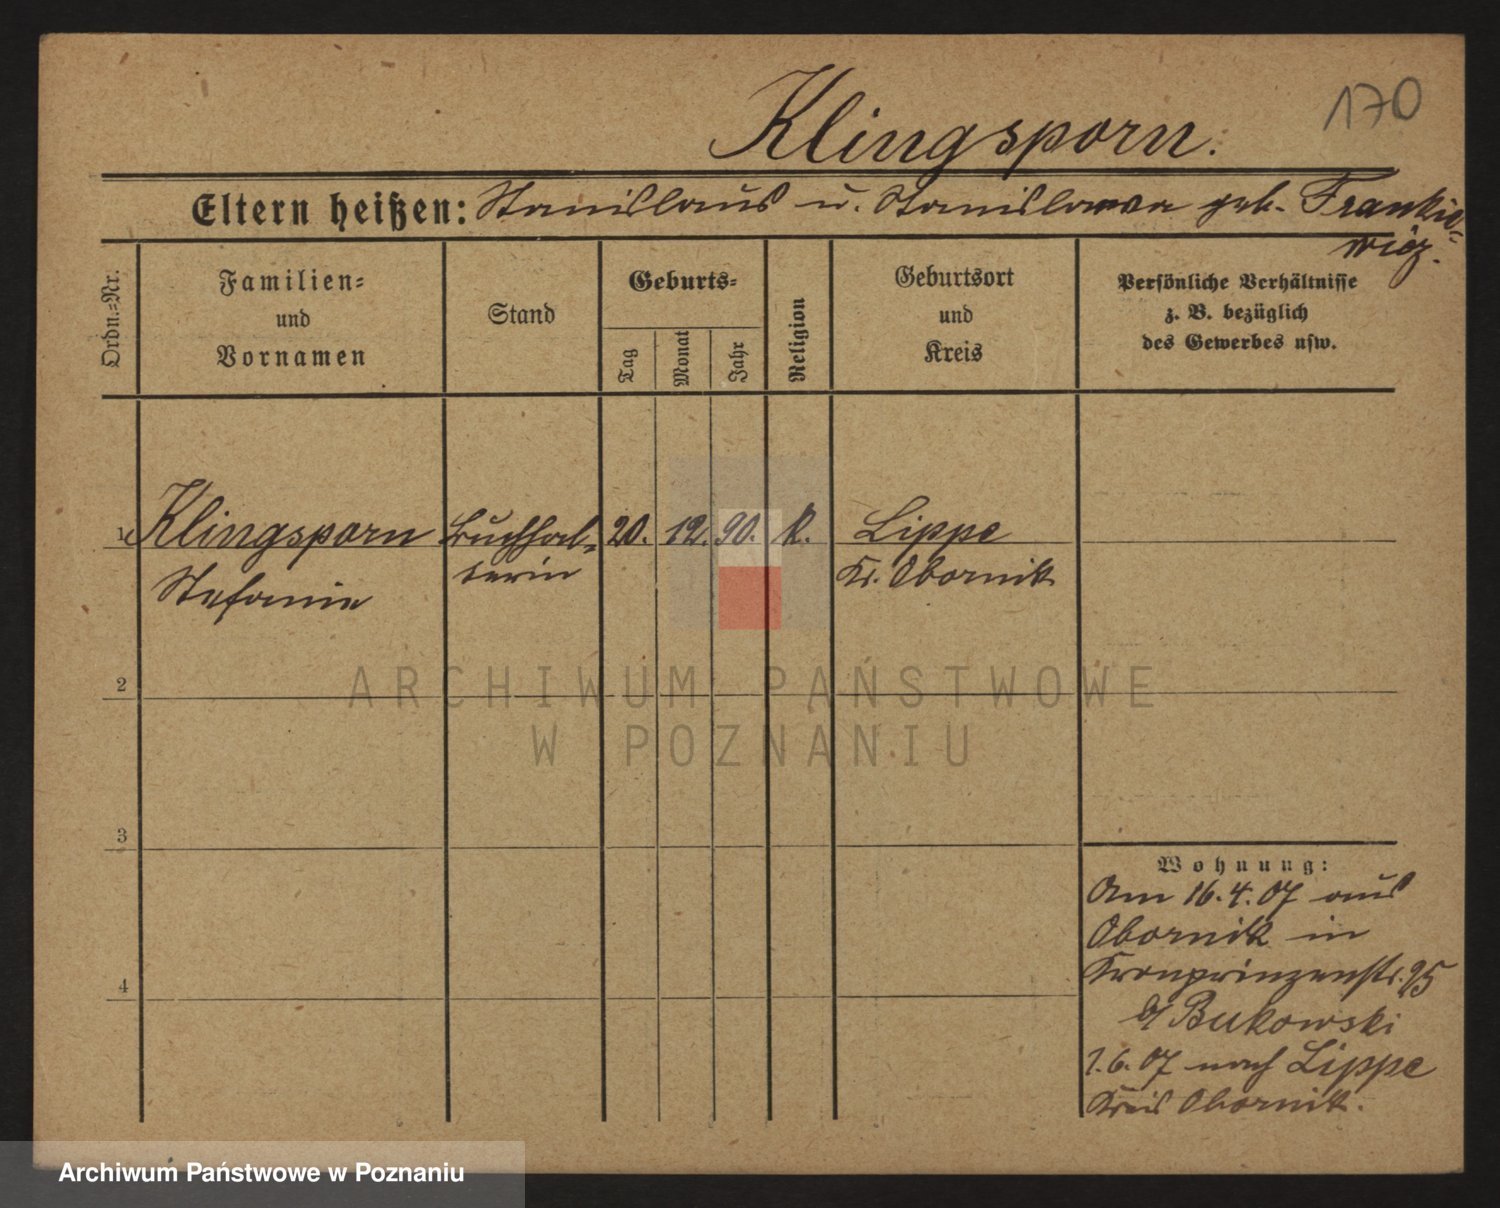 170
Klingsporn.
Eltern heißen: Stanislaus u. Stanislawa geb. Frankie-
wicz.
Ordn.-Nr.
Familien-
und
Vornamen
Stand
Geburts-
Tag
Monat
Jahr
Religion
Geburtsort
und
Kreis
Persönliche Verhältnisse
z. B. bezüglich
des Gewerbes usw.
1 Klingsporn Buchhal- 20. 12. 90. K. Lippe
Stefanie terin Kr. Obornik
2
3
4
Wohnung:
Am 16.4.07 aus
Obornik in
Kronprinzenstr. 95
b/ Bukowski
1.6.07 nach Lippe
Kreis Obornik.
ARCHIWUM PAŃSTWOWE
W POZNANIU
Archiwum Państwowe w Poznaniu